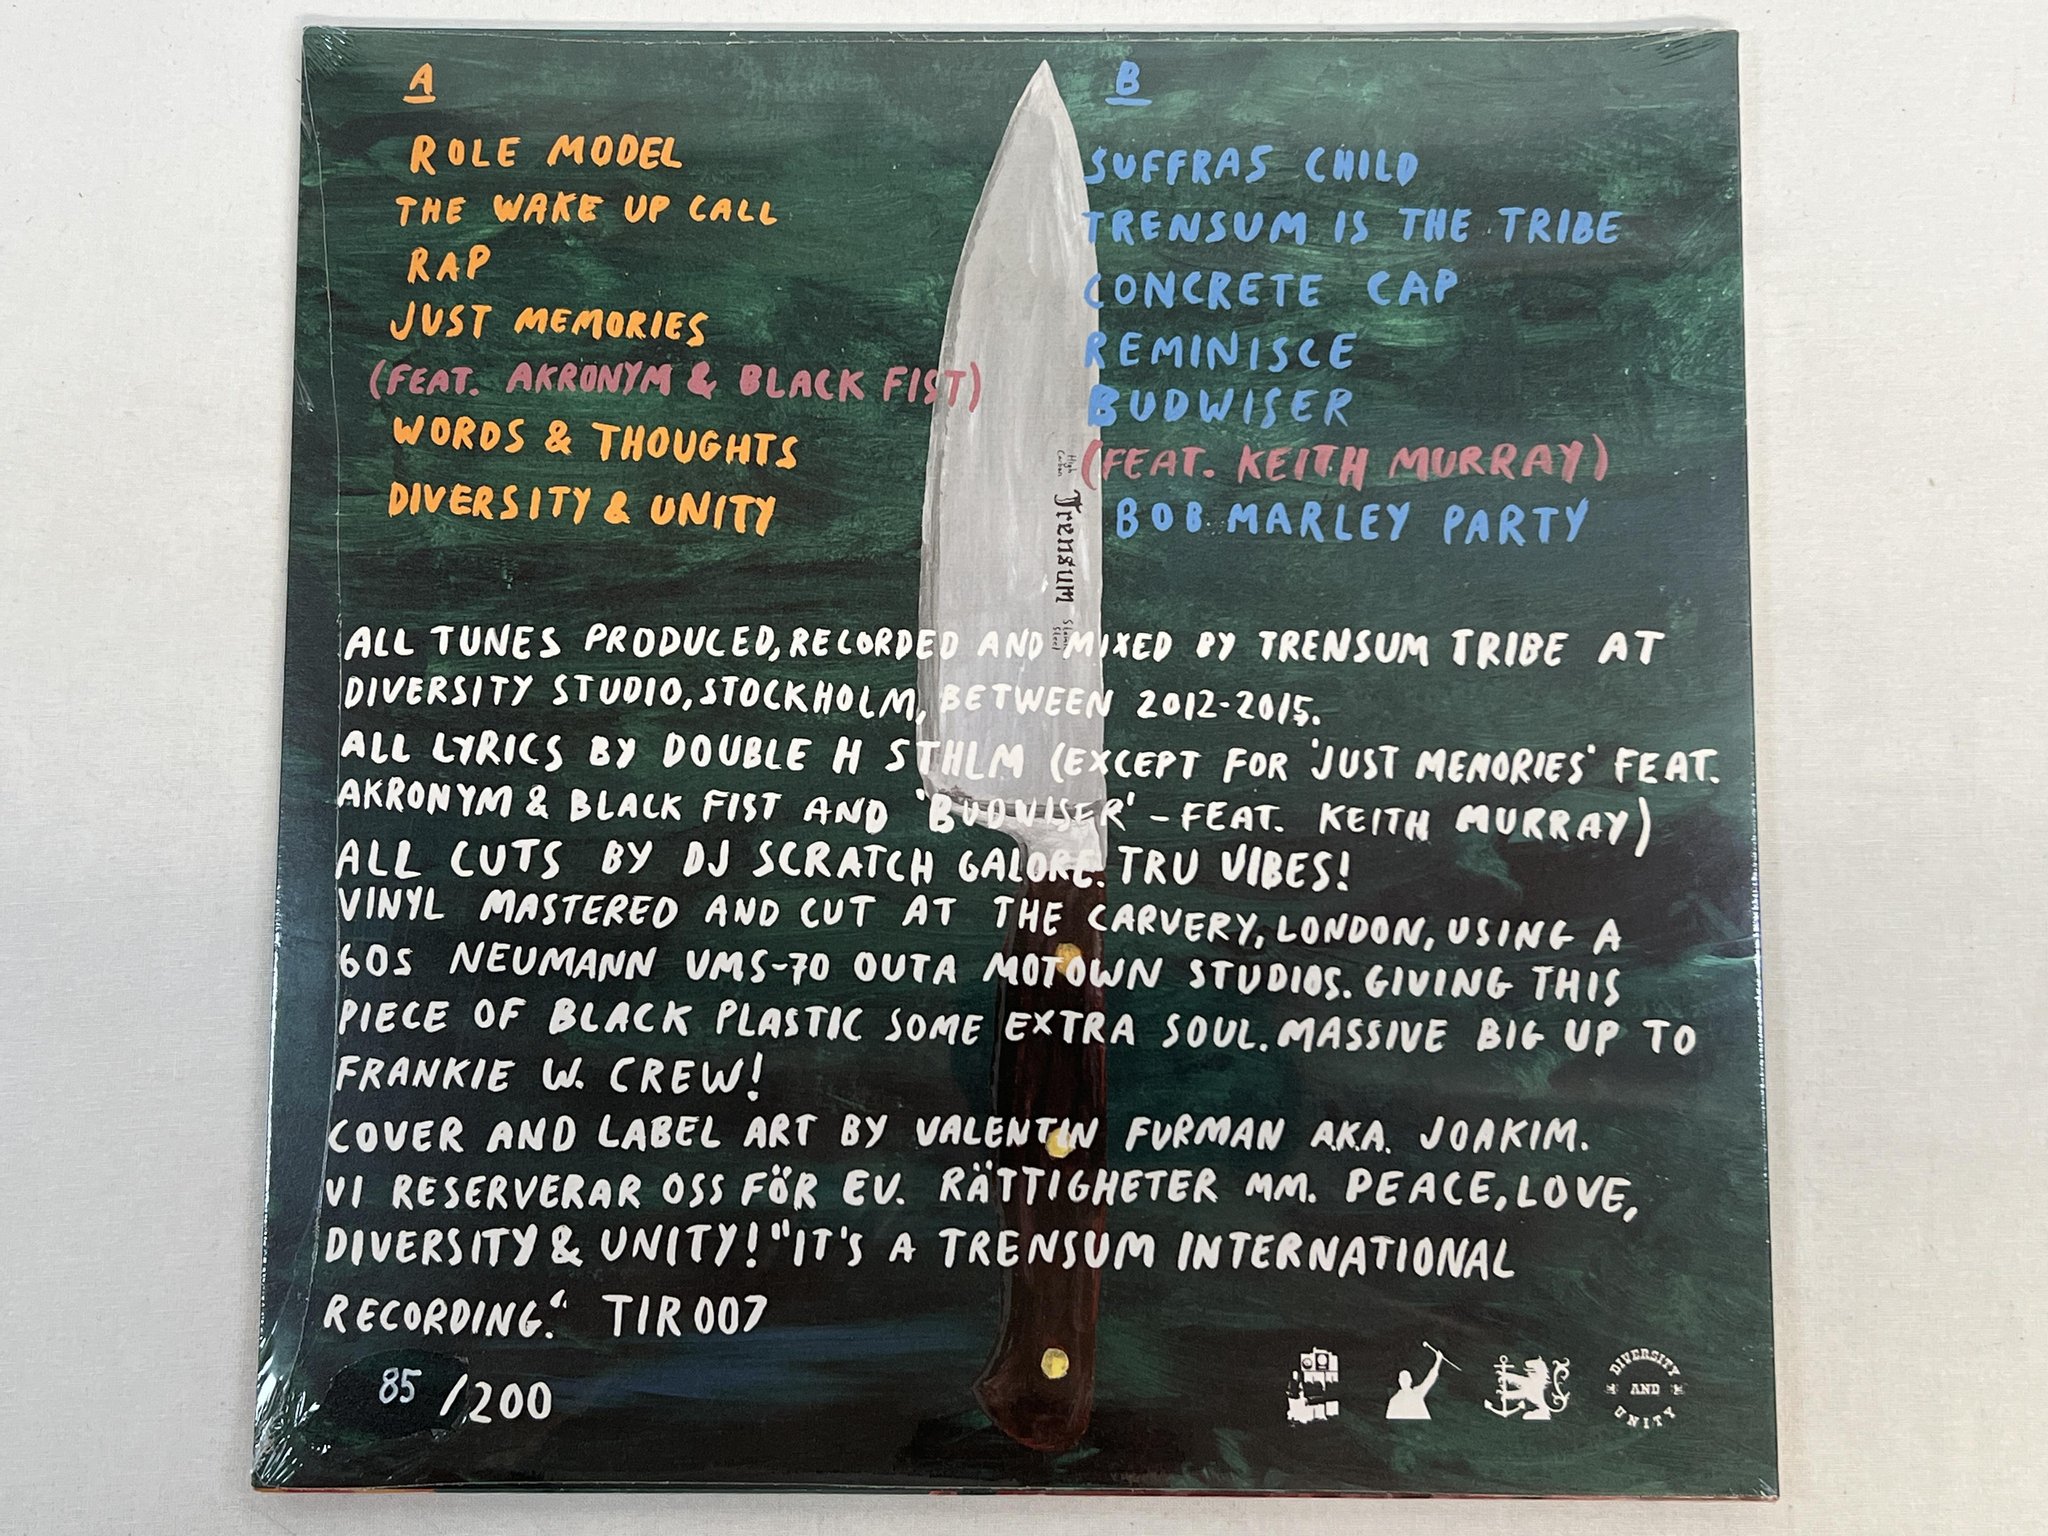 A
ROLE MODEL
THE WAKE UP CALL
RAP
JUST MEMORIES
(FEAT. AKRONYM & BLACK FIST)
WORDS & THOUGHTS
DIVERSITY & UNITY
B
SUFFRAS CHILD
TRENSUM IS THE TRIBE
CONCRETE CAP
REMINISCE
BUDWISER
(FEAT. KEITH MURRAY)
BOB MARLEY PARTY
High
Carbon
Trensum
Steel
ALL TUNES PRODUCED, RECORDED AND MIXED BY TRENSUM TRIBE AT
DIVERSITY STUDIO, STOCKHOLM, BETWEEN 2012-2015.
ALL LYRICS BY DOUBLE H STHLM (EXCEPT FOR 'JUST MEMORIES' FEAT.
AKRONYM & BLACK FIST AND 'BUDWISER' - FEAT. KEITH MURRAY)
ALL CUTS BY DJ SCRATCH GALORE. TRU VIBES!
VINYL MASTERED AND CUT AT THE CARVERY, LONDON, USING A
60S NEUMANN VMS-70 OUTA MOTOWN STUDIOS. GIVING THIS
PIECE OF BLACK PLASTIC SOME EXTRA SOUL. MASSIVE BIG UP TO
FRANKIE W. CREW!
COVER AND LABEL ART BY VALENTIN FURMAN A.K.A. JOAKIM.
VI RESERVERAR OSS FÖR EV. RÄTTIGHETER MM. PEACE, LOVE,
DIVERSITY & UNITY! "IT'S A TRENSUM INTERNATIONAL
RECORDING." TIR007
85 /200
DIVERSITY
AND
UNITY